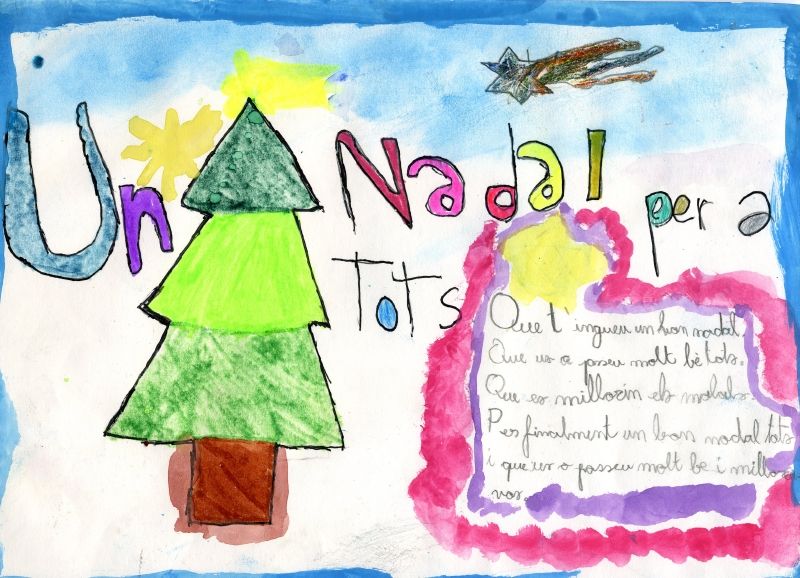 Un Nadal per a
Tots
Que t'ingueu un bon nadal.
Que us o paseu molt bé tots.
Que es millorin els malalts.
Per finalment un bon nadal tots
i que us o passeu molt be i millor
vos.